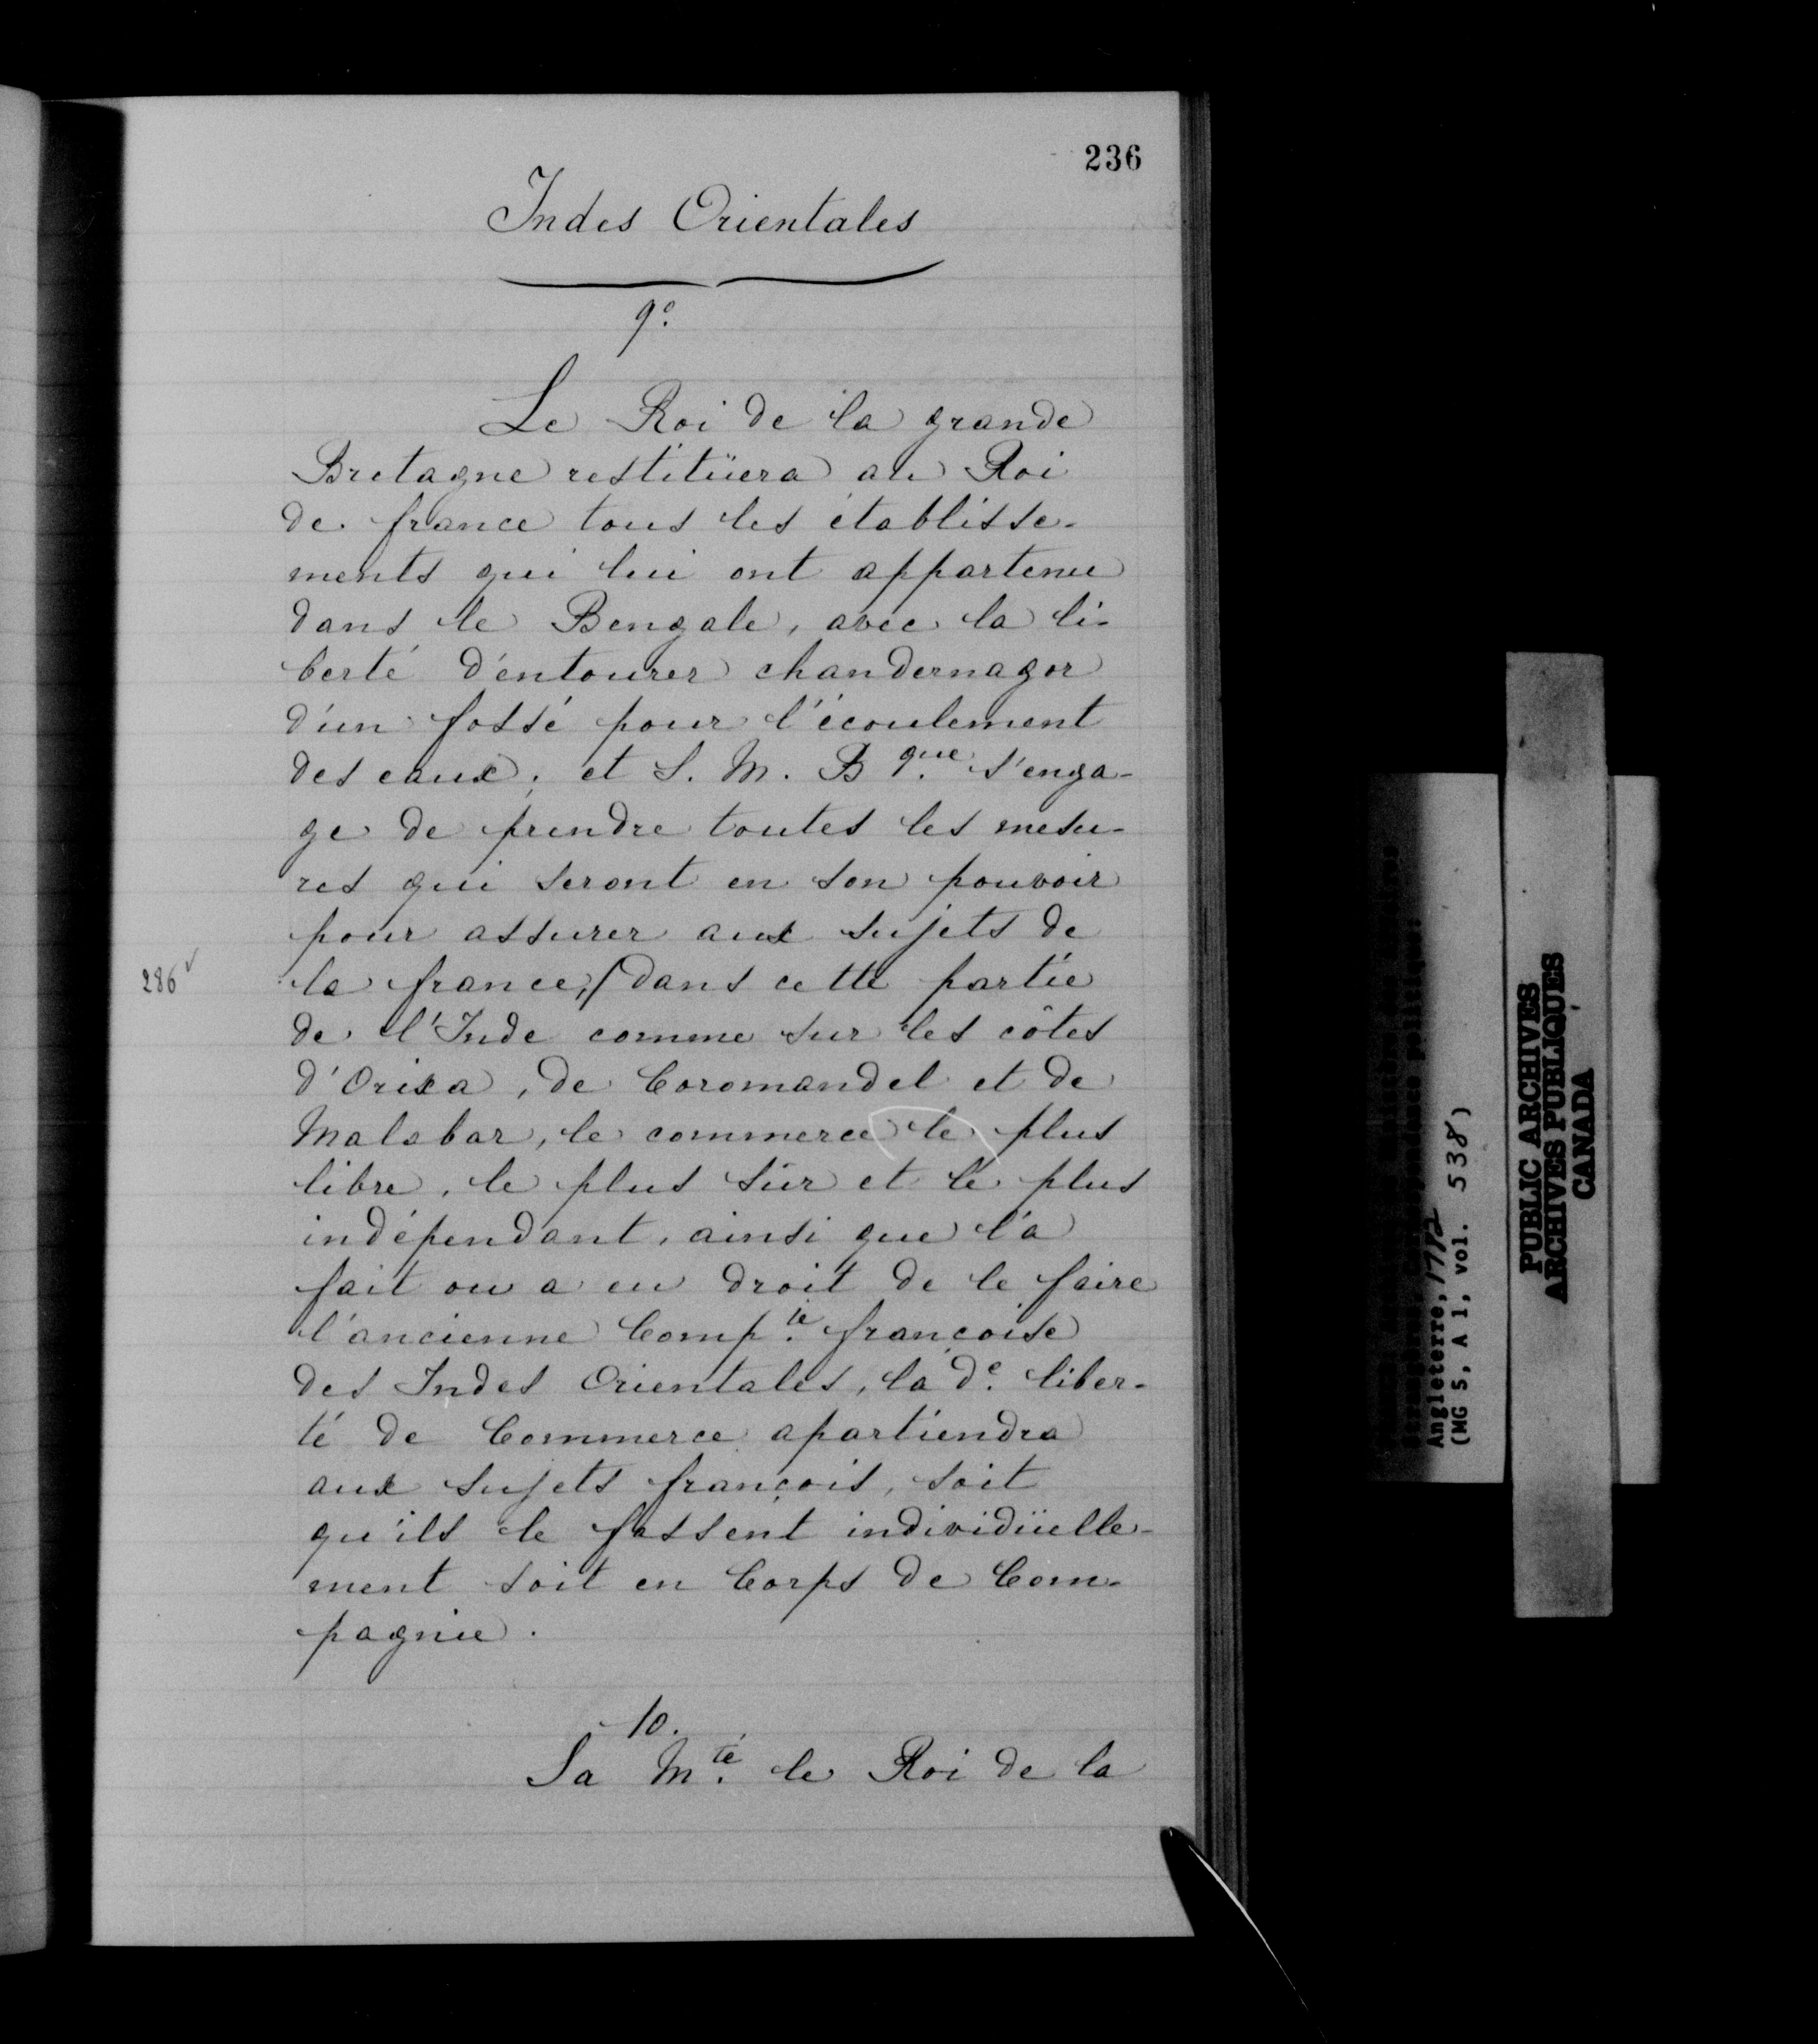 236
Indes Orientales
9º.
Le Roi de la grande
Bretagne restitüera au Roi
de france tous les établisse-
ments qui lui ont appartenu
dans le Bengale, avec la li-
berté d'entourer chandernagor
d'un fossé pour l'écoulement
des eaux; et S. M. B que. s'enga-
ge de prendre toutes les mesu-
res qui seront en son pouvoir
pour assurer aux sujets de
286 v
la france,/dans cette partie
de l'Inde comme sur les côtes
d'Orixa, de Coromandel et de
Malabar, le commerce le plus
libre, le plus sûr et le plus
indépendant, ainsi que l'a
fait ou a eu droit de le faire
l'ancienne Comp.ie françoise
des Indes Orientales, la de. liber-
té de Commerce apartiendra
aux sujets françois, soit
qu'ils le fassent individüelle-
ment soit en Corps de Com-
pagnie.
10.
Sa Mté. le Roi de la
Angleterre, 1782
(MG 5, A 1, vol. 538)
PUBLIC ARCHIVES
ARCHIVES PUBLIQUES
CANADA